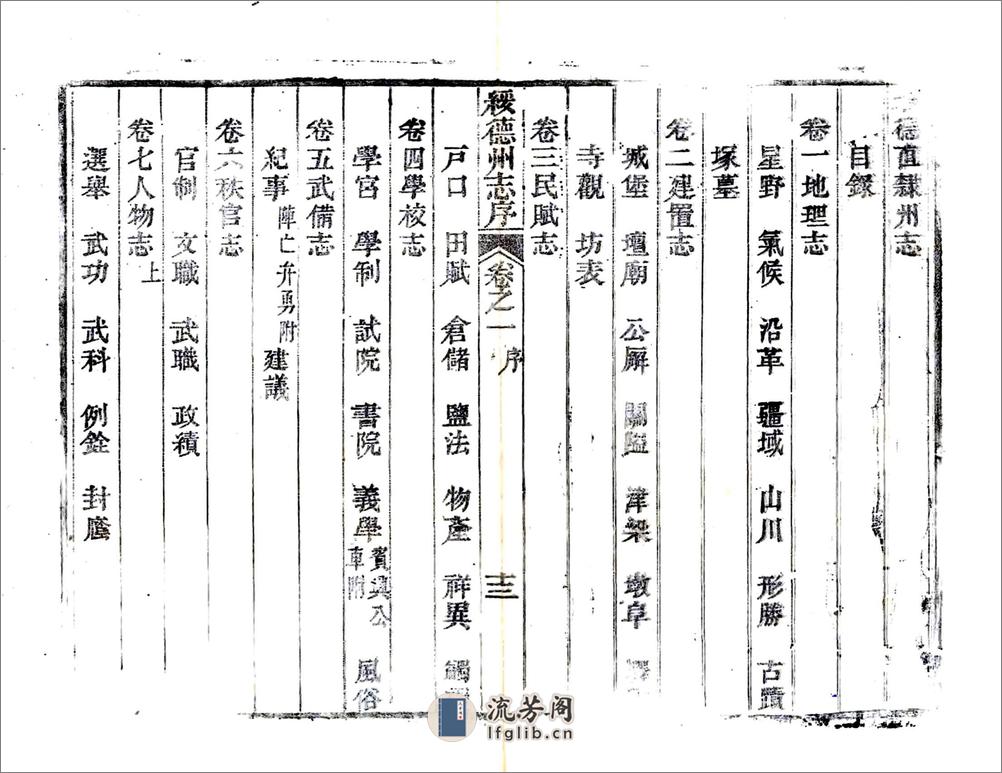 德直隸州志
目錄
卷一地理志
星野 氣候 沿革 疆域 山川 形勝 古蹟
塚墓
卷二建置志
城堡 壇廟 公廨 關隘 津梁 墩阜
寺觀 坊表
卷三民賦志
綏德州志序 卷之一 序 十三
戸口 田賦 倉儲 鹽法 物產 祥異 蠲
卷四學校志
學宮 學制 試院 書院 義學 賓興公車附 風俗
卷五武備志
紀事 陣亡弁勇附 建議
卷六秩官志
官制 文職 武職 政績
卷七人物志上
選舉 武功 武科 例銓 封廕
流芳阁
lfglib.cn